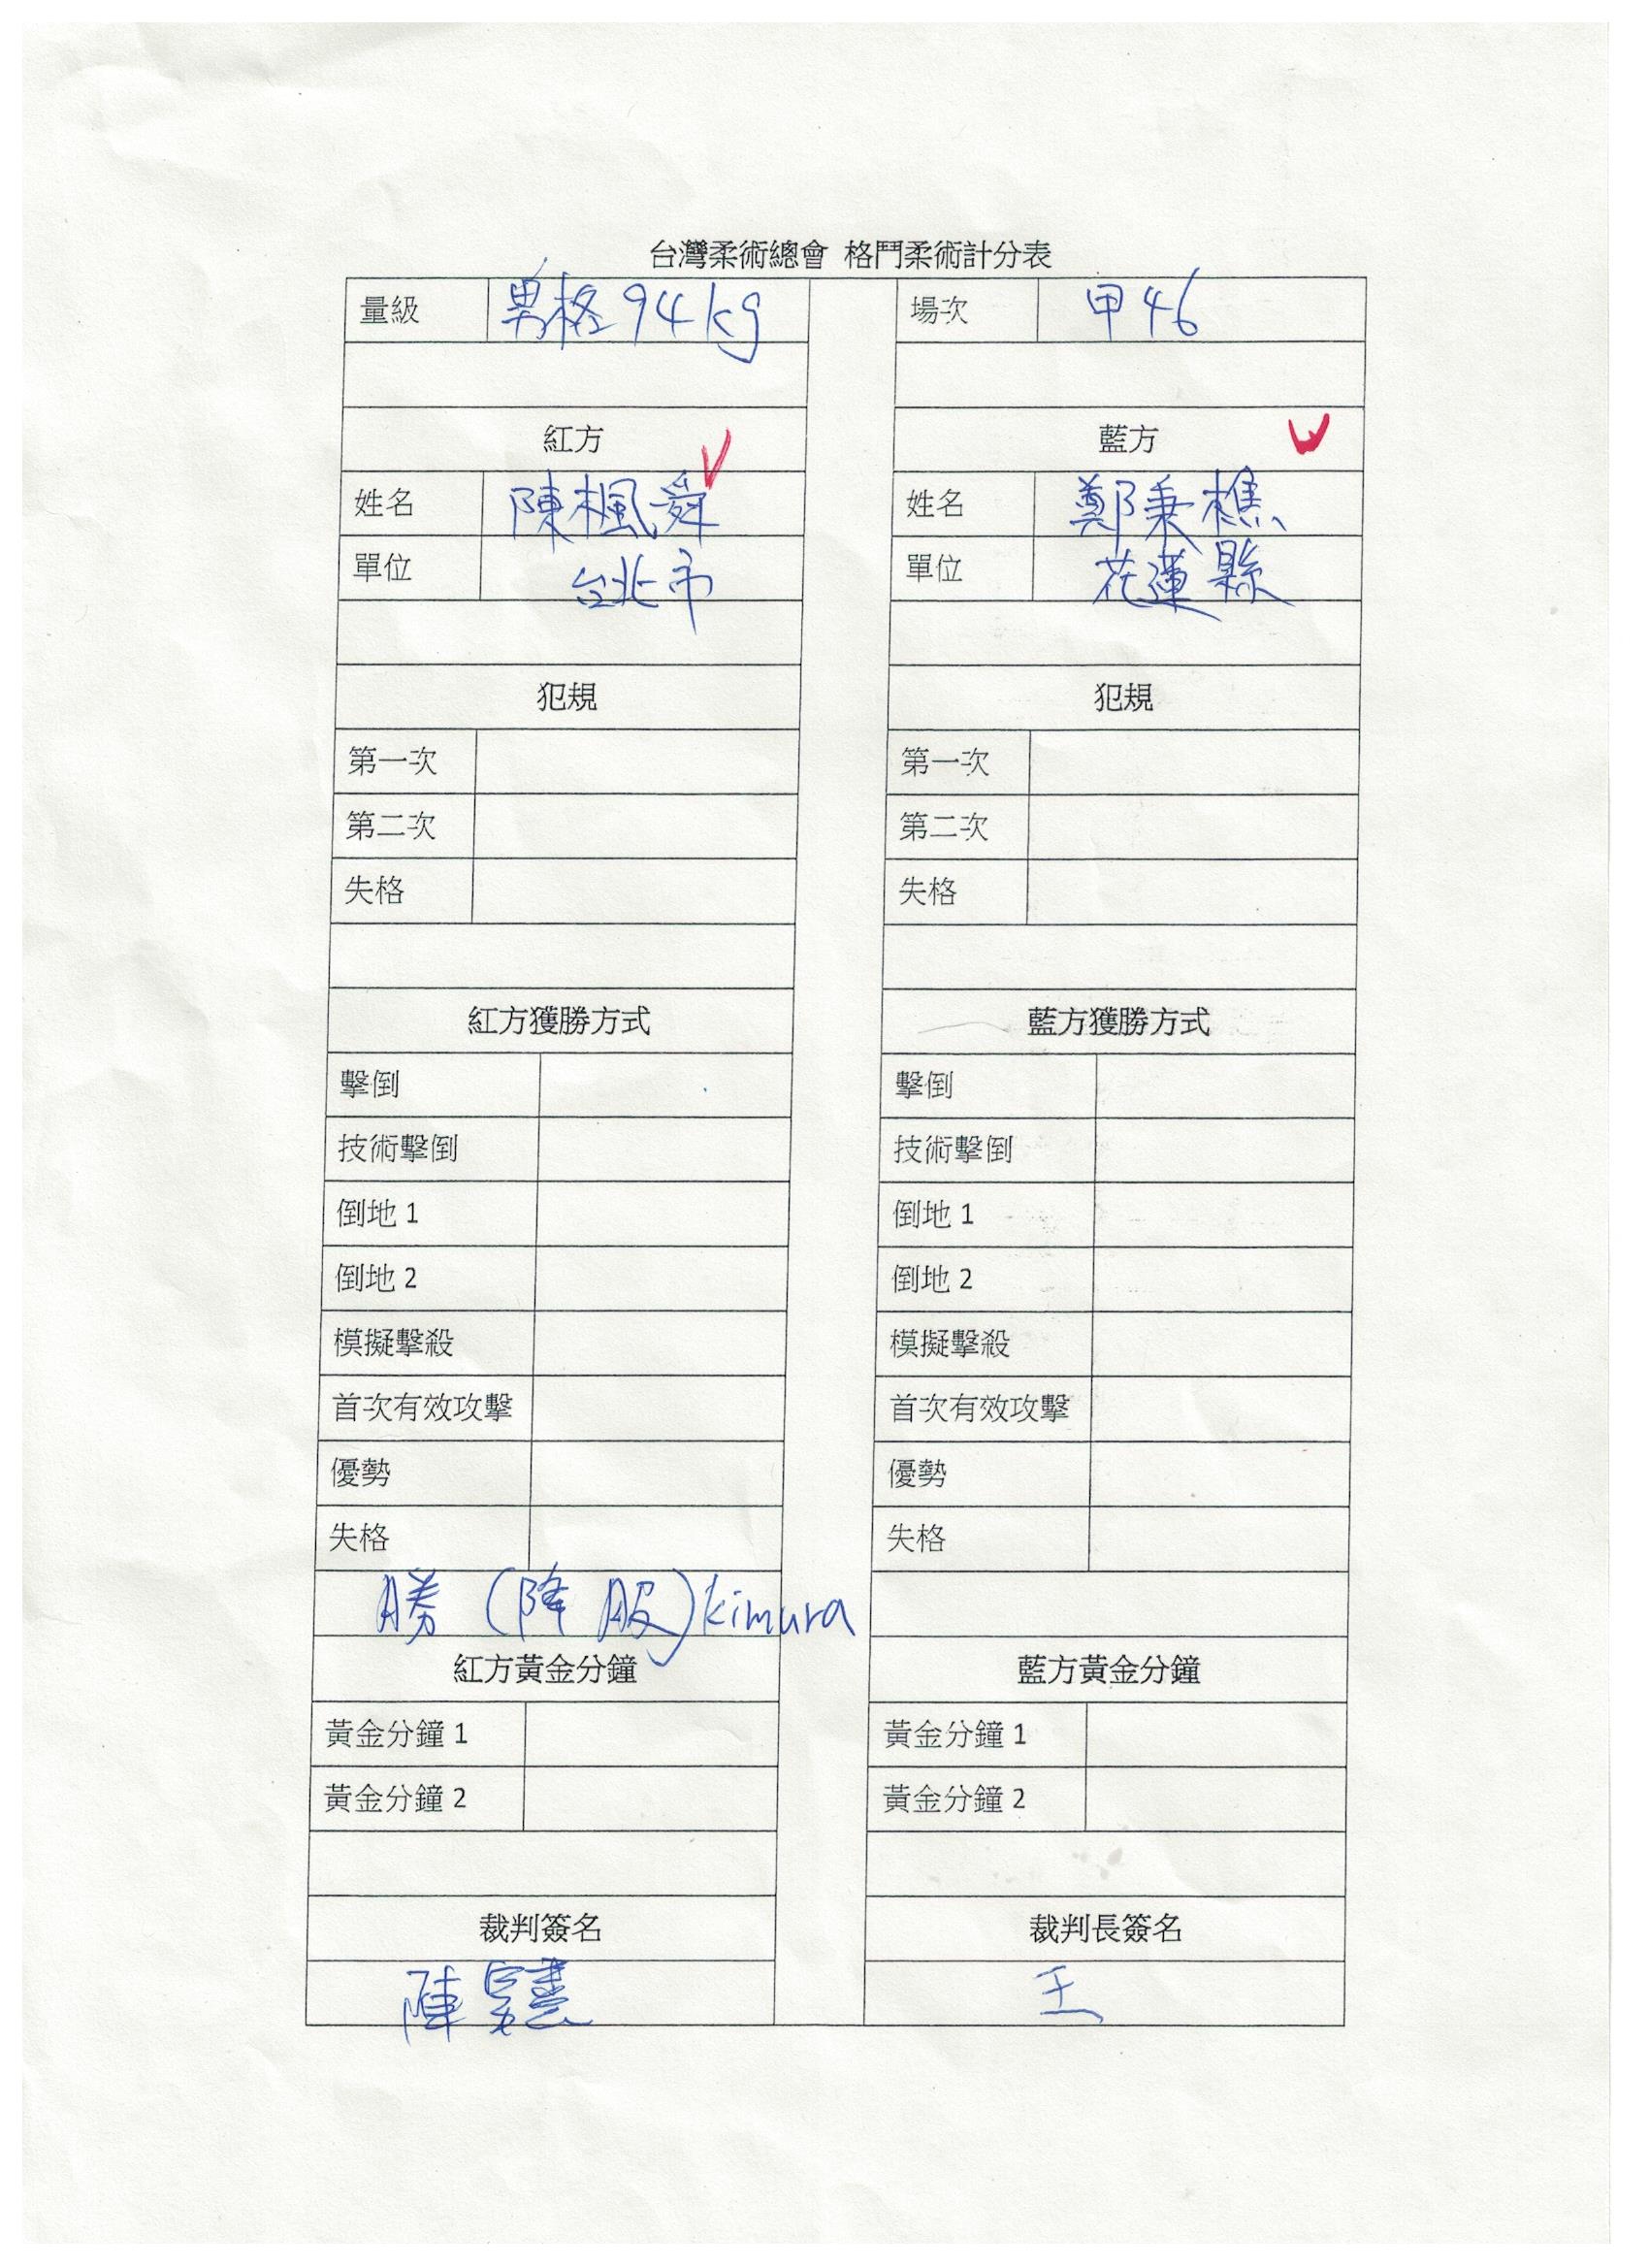 台灣柔術總會 格鬥柔術計分表
量級 男格94kg 場次 甲46
紅方 藍方
姓名 陳楓舜 姓名 鄭秉樵
單位 台北市 單位 花蓮縣
犯規 犯規
第一次 第一次
第二次 第二次
失格 失格
紅方獲勝方式 藍方獲勝方式
擊倒 擊倒
技術擊倒 技術擊倒
倒地 1 倒地 1
倒地 2 倒地 2
模擬擊殺 模擬擊殺
首次有效攻擊 首次有效攻擊
優勢 優勢
失格 失格
勝 (降服) kimura
紅方黃金分鐘 藍方黃金分鐘
黃金分鐘 1 黃金分鐘 1
黃金分鐘 2 黃金分鐘 2
裁判簽名 裁判長簽名
陳 王